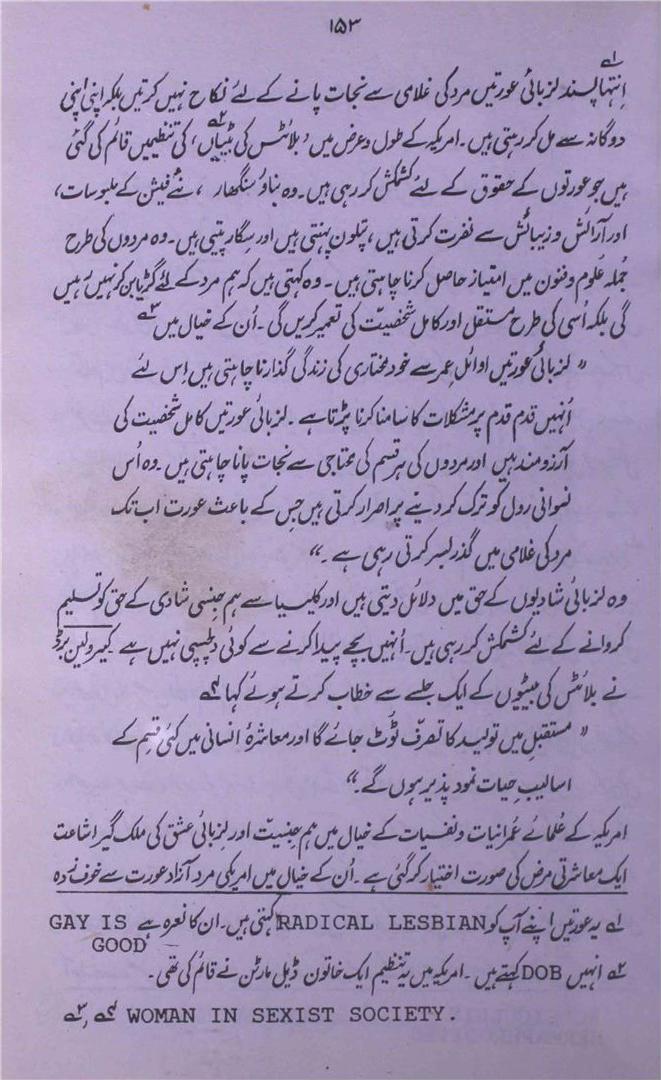 ۱۵۳
اِنتہا پسند۱؎ لزبائی عورتیں مرد کی غلامی سے نجات پانے کے لئے نکاح نہیں کرتیں بلکہ اپنی اپنی
دوگانہ سے مل کر رہتی ہیں۔ امریکہ کے طول و عرض میں ’بلائٹس کی بیٹیاں۲؎‘ کی تنظیمیں قائم کی گئی
ہیں جو عورتوں کے حقوق کے لئے کشمکش کر رہی ہیں۔ وہ بناؤ سنگھار ، نئے فیشن کے ملبوسات،
اور آرائش و زیبائش سے نفرت کرتی ہیں، پتلون پہنتی ہیں اور سگار پیتی ہیں۔ وہ مردوں کی طرح
جُملہ عُلوم و فنون میں امتیاز حاصل کرنا چاہتی ہیں۔ وہ کہتی ہیں کہ ہم مرد کے لئے گڑیا بن کر نہیں رہیں
گی بلکہ اُسی کی طرح مستقل اور کامل شخصیّت کی تعمیر کریں گی۔ اُن کے خیال میں۳؎
” لزبائی عورتیں اوائلِ عمر سے خود مختاری کی زندگی گذارنا چاہتی ہیں اِس لئے
اُنہیں قدم قدم پر مشکلات کا سامنا کرنا پڑتا ہے۔ لزبائی عورتیں کامل شخصیت کی
آرزومند ہیں اور مردوں کی ہر قسم کی محتاجی سے نجات پانا چاہتی ہیں۔ وہ اُس
نسوانی رول کو ترک کر دینے پر اصرار کرتی ہیں جس کے باعث عورت اب تک
مرد کی غلامی میں گذر بسر کرتی رہی ہے۔“
وہ لزبائی شادیوں کے حق میں دلائل دیتی ہیں اور کلیسیا سے ہم جنسی شادی کے حق کو تسلیم
کروانے کے لئے کشمکش کر رہی ہیں۔ اُنہیں بچے پیدا کرنے سے کوئی دلچسپی نہیں ہے کیرولین برڈ
نے بلائٹس کی بیٹیوں کے ایک جلسے سے خطاب کرتے ہوئے کہا۴؎
” مستقبل میں تولید کا تصرّف ٹوٹ جائے گا اور معاشرۂ انسانی میں کئی قسم کے
اسالیبِ حیات نمود پذیر ہوں گے۔“
امریکہ کے عُلمائے عُمرانیات و نفسیات کے خیال میں ہم جنسیّت اور لزبائی عشق کی ملک گیر اشاعت
ایک معاشرتی مرض کی صورت اختیار کر گئی ہے۔ اُن کے خیال میں امریکی مرد آزاد عورت سے خوف زدہ
۱؎ یہ عورتیں اپنے آپ کو RADICAL LESBIAN کہتی ہیں۔ ان کا نعرہ ہے GAY IS
GOOD
۲؎ انہیں DOB کہتے ہیں۔ امریکہ میں یہ تنظیم ایک خاتون ڈیل مارٹن نے قائم کی تھی۔
۳؎، ۴؎ WOMAN IN SEXIST SOCIETY.